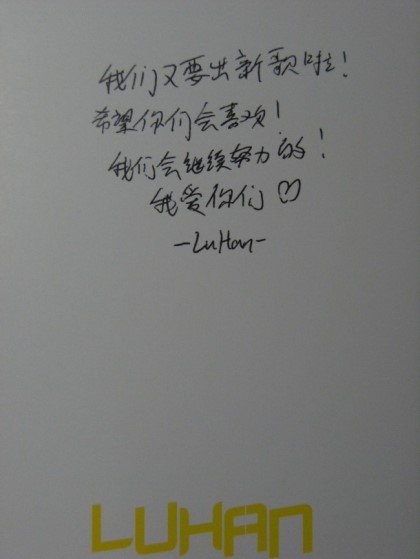 我们又要出新歌啦！
希望你们会喜欢！
我们会继续努力的！
我爱你们♡
-LuHan-
LUHAN